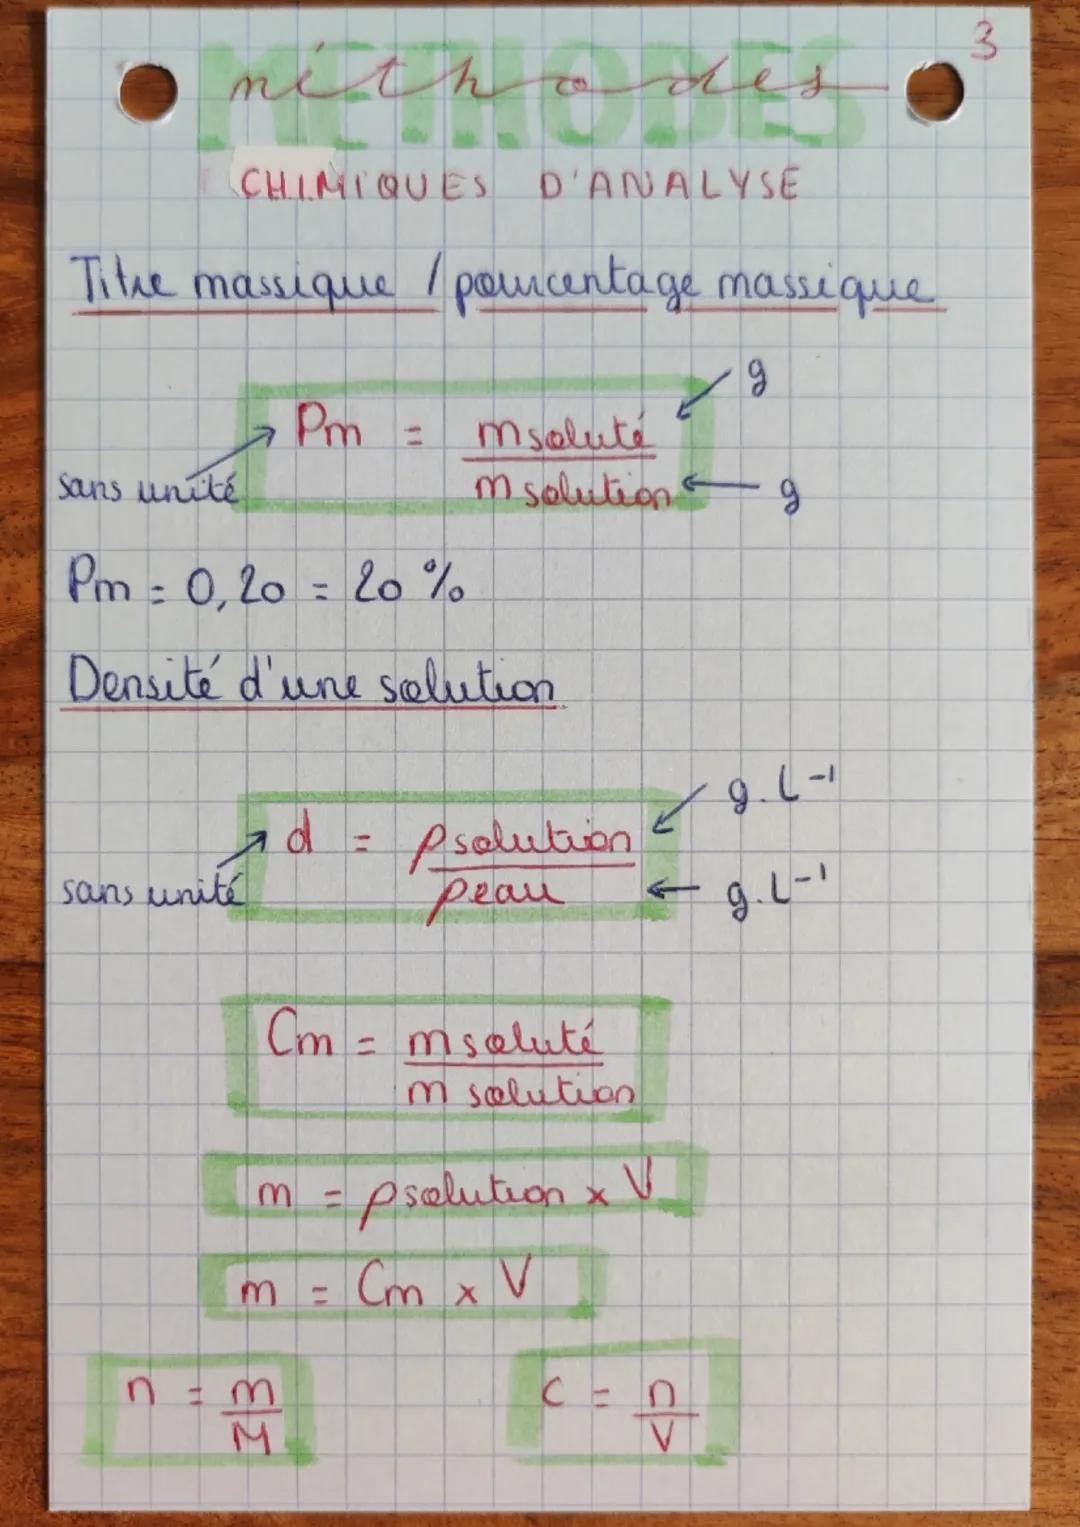 3
MÉTHODES
méthodes
CHIMIQUES D'ANALYSE
Titre massique / pourcentage massique
g
Pm = m soluté / m solution
sans unité
g
Pm = 0,20 = 20 %
Densité d'une solution
g.L⁻¹
d = ρ solution / ρ eau
sans unité
g.L⁻¹
Cm = m soluté / m solution
m = ρ solution x V
m = Cm x V
n = m / M
C = n / V